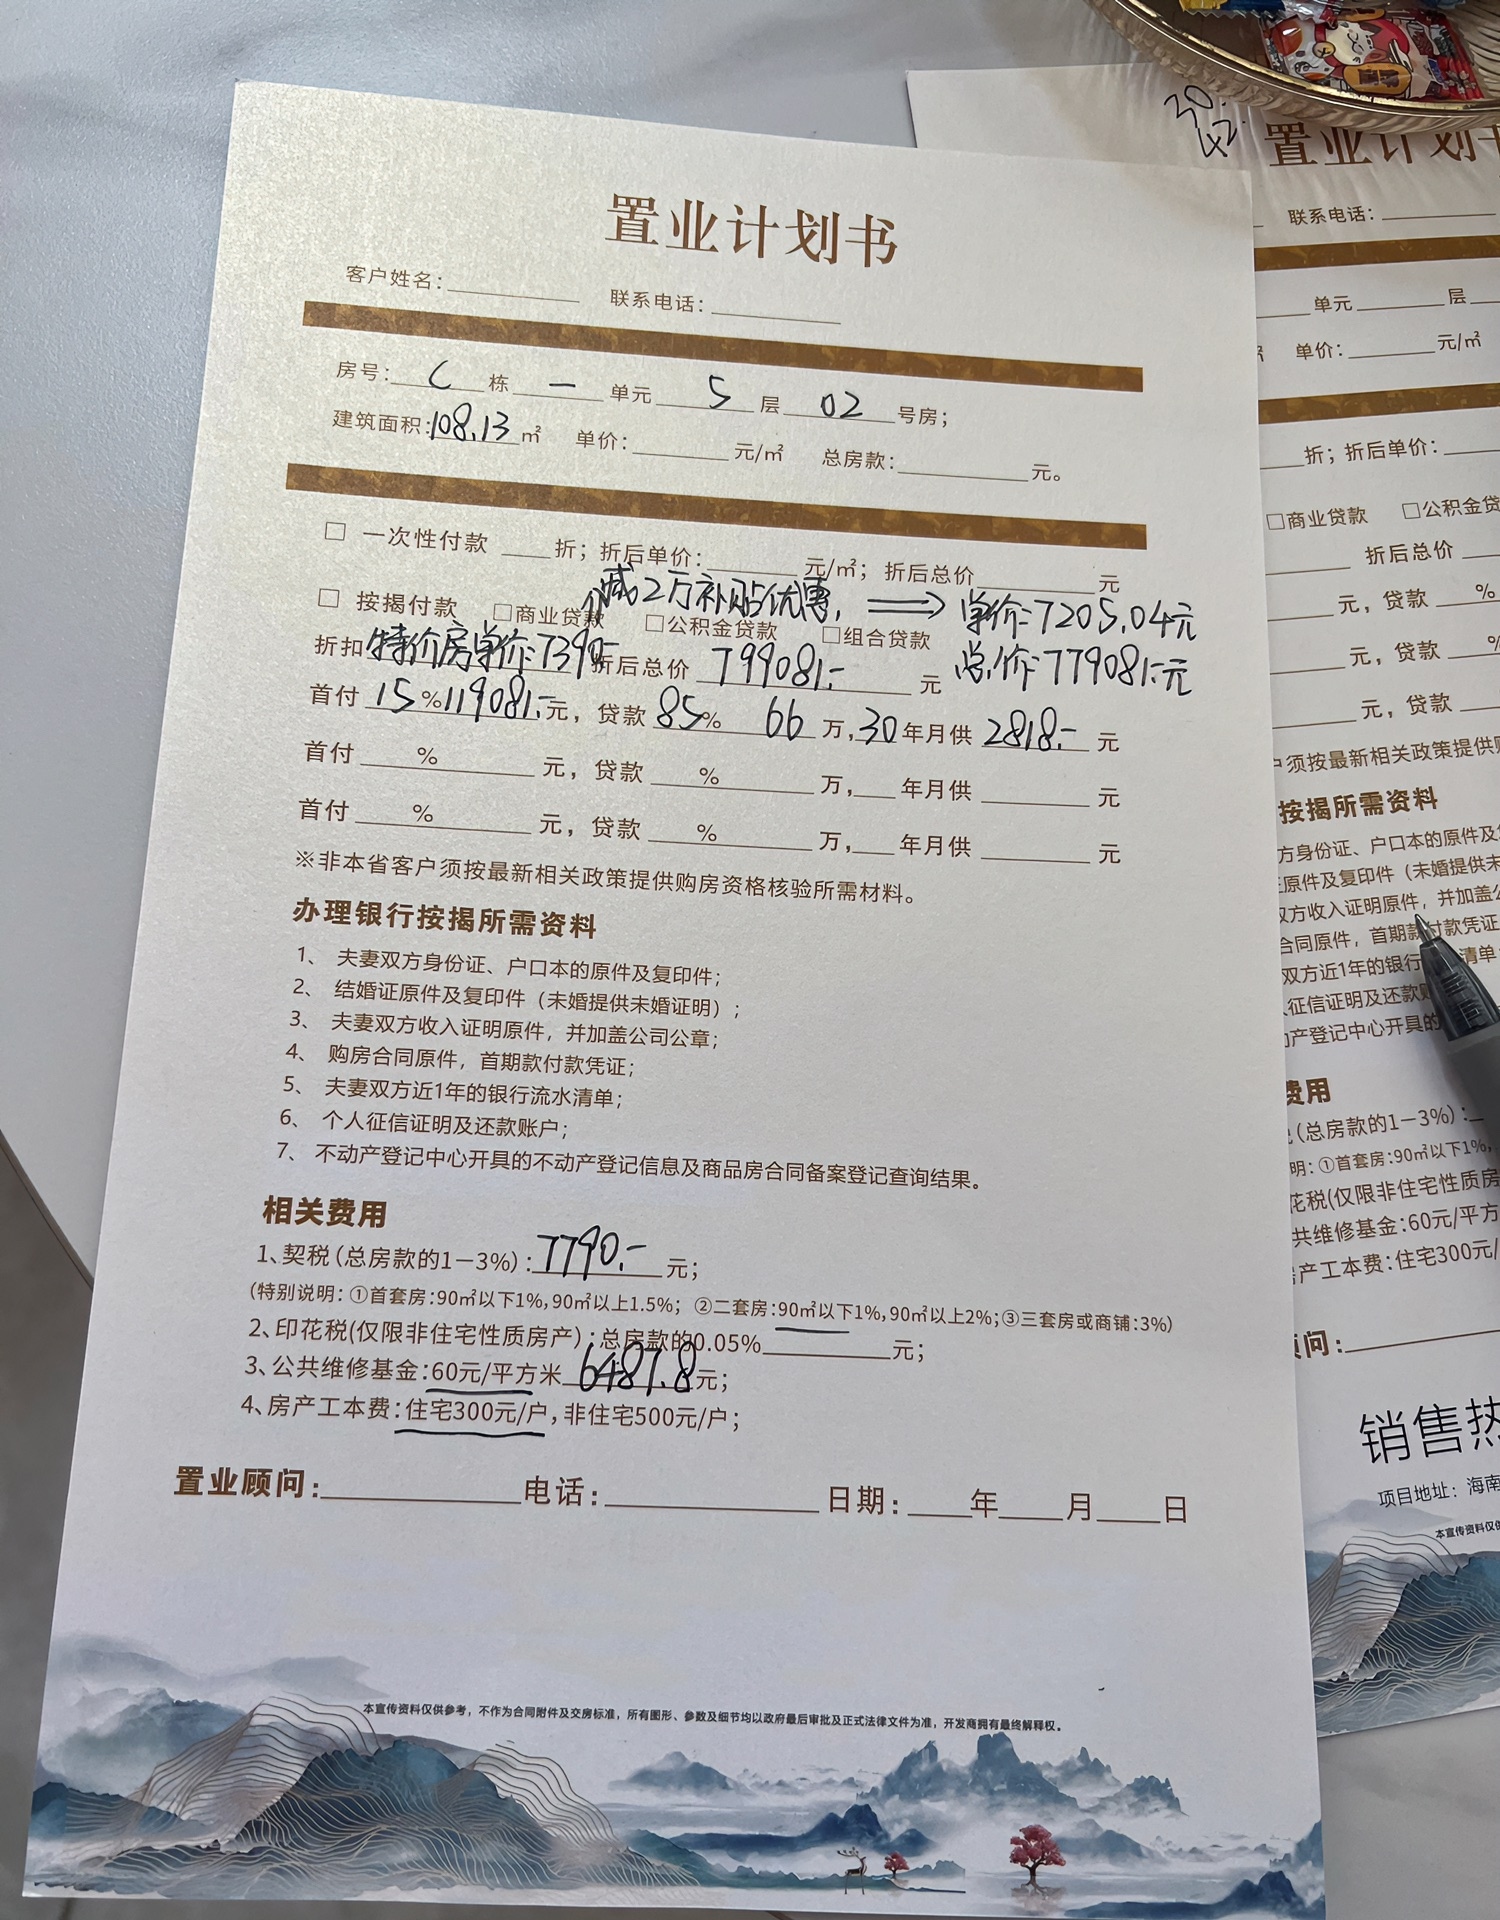 置业计划书
客户姓名：________ 联系电话：________
房号：C栋一单元5层02号房；
建筑面积：108.13㎡ 单价：____元/㎡ 总房款：____元。
□ 一次性付款 ____折；折后单价：____元/㎡；折后总价____元
减2万补贴优惠, ⟹ 单价:7205.04元
□ 按揭付款 □商业贷款 □公积金贷款 □组合贷款
总价:779081.-元
折扣特价房单价:7390.- 折后总价 799081.- 元
首付 15%119081.-元，贷款85% 66万,30年月供 2818.- 元
首付____%____元，贷款____%____万,____年月供____元
首付____%____元，贷款____%____万,____年月供____元
※非本省客户须按最新相关政策提供购房资格核验所需材料。
办理银行按揭所需资料
1、夫妻双方身份证、户口本的原件及复印件；
2、结婚证原件及复印件（未婚提供未婚证明）；
3、夫妻双方收入证明原件，并加盖公司公章；
4、购房合同原件，首期款付款凭证；
5、夫妻双方近1年的银行流水清单；
6、个人征信证明及还款账户；
7、不动产登记中心开具的不动产登记信息及商品房合同备案登记查询结果。
相关费用
1、契税（总房款的1—3%）：7790.-元；
(特别说明：①首套房：90㎡以下1%,90㎡以上1.5%；②二套房：90㎡以下1%,90㎡以上2%;③三套房或商铺：3%)
2、印花税(仅限非住宅性质房产)；总房款的0.05%____元；
3、公共维修基金：60元/平方米 6487.8元；
4、房产工本费：住宅300元/户，非住宅500元/户；
置业顾问：____电话：____日期：____年____月____日
本宣传资料仅供参考，不作为合同附件及交房标准，所有图形、参数及细节均以政府最后审批及正式法律文件为准，开发商拥有最终解释权。
30.
42.
置业计划
联系电话：____
单元____层
单价：____元/㎡
折；折后单价：
□商业贷款 □公积金贷
折后总价
元，贷款____%
元，贷款____%
元，贷款
须按最新相关政策提供
按揭所需资料
方身份证、户口本的原件及
原件及复印件（未婚提供未
双方收入证明原件，并加盖
合同原件，首期款付款凭证
双方近1年的银行 清单
征信证明及还款
产登记中心开具的
费用
（总房款的1—3%）：
明：①首套房：90㎡以下1%,
花税(仅限非住宅性质房
共维修基金：60元/平方
产工本费：住宅300元/
顾问：
销售热
项目地址：海南
本宣传资料仅供